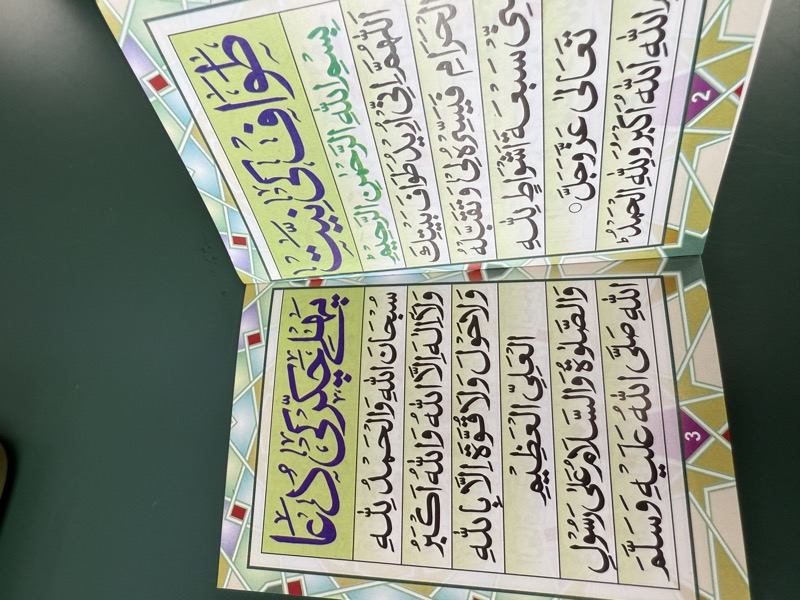 طواف کی نیت
بِسْمِ اللهِ الرَّحْمٰنِ الرَّحِيْمِ
اَللّٰهُمَّ اِنِّيْ اُرِيْدُ طَوَافَ بَيْتِكَ
الْحَرَامِ فَيَسِّرْهُ لِيْ وَتَقَبَّلْهُ
مِنِّيْ سَبْعَةَ اَشْوَاطٍ لِلّٰهِ
تَعَالٰى عَزَّوَجَلَّ ○
اَللهُ اَكْبَرُ وَلِلّٰهِ الْحَمْدُ ؕ
2
پہلے چکر کی دُعا
سُبْحَانَ اللهِ وَالْحَمْدُ لِلّٰهِ
وَلَاۤ اِلٰهَ اِلَّا اللهُ وَاللهُ اَكْبَرُ
وَلَا حَوْلَ وَلَا قُوَّةَ اِلَّا بِاللهِ
الْعَلِيِّ الْعَظِيْمِ
وَالصَّلٰوةُ وَالسَّلَامُ عَلٰى رَسُوْلِ
اللهِ صَلَّى اللهُ عَلَيْهِ وَسَلَّمَ
3